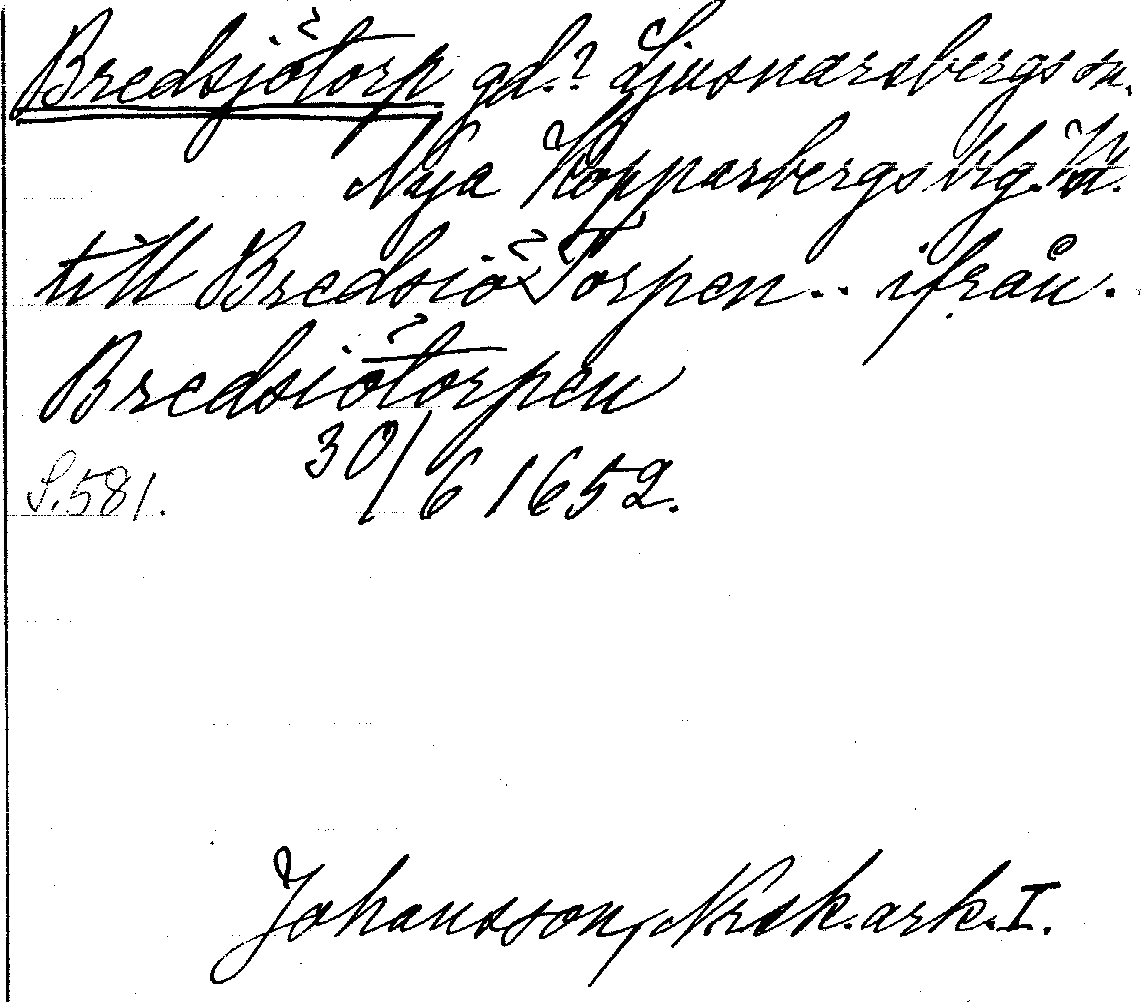 Bredsjötorp gd.? Ljusnarsbergs sn.
Nya Kopparbergs blg. Vm.
till Bredsiö Torpen .. ifrån.
Bredsiötorpen
30/6 1652.
S. 581.
Johansson, Nrsk. ark. I.